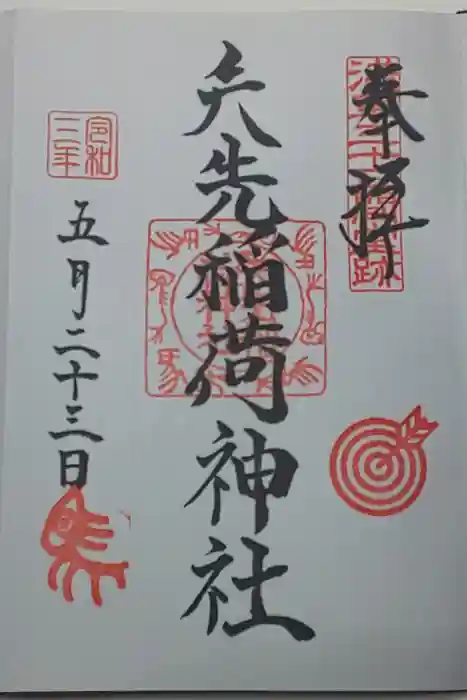 奉拝
矢先稲荷神社
令和三年
五月二十三日